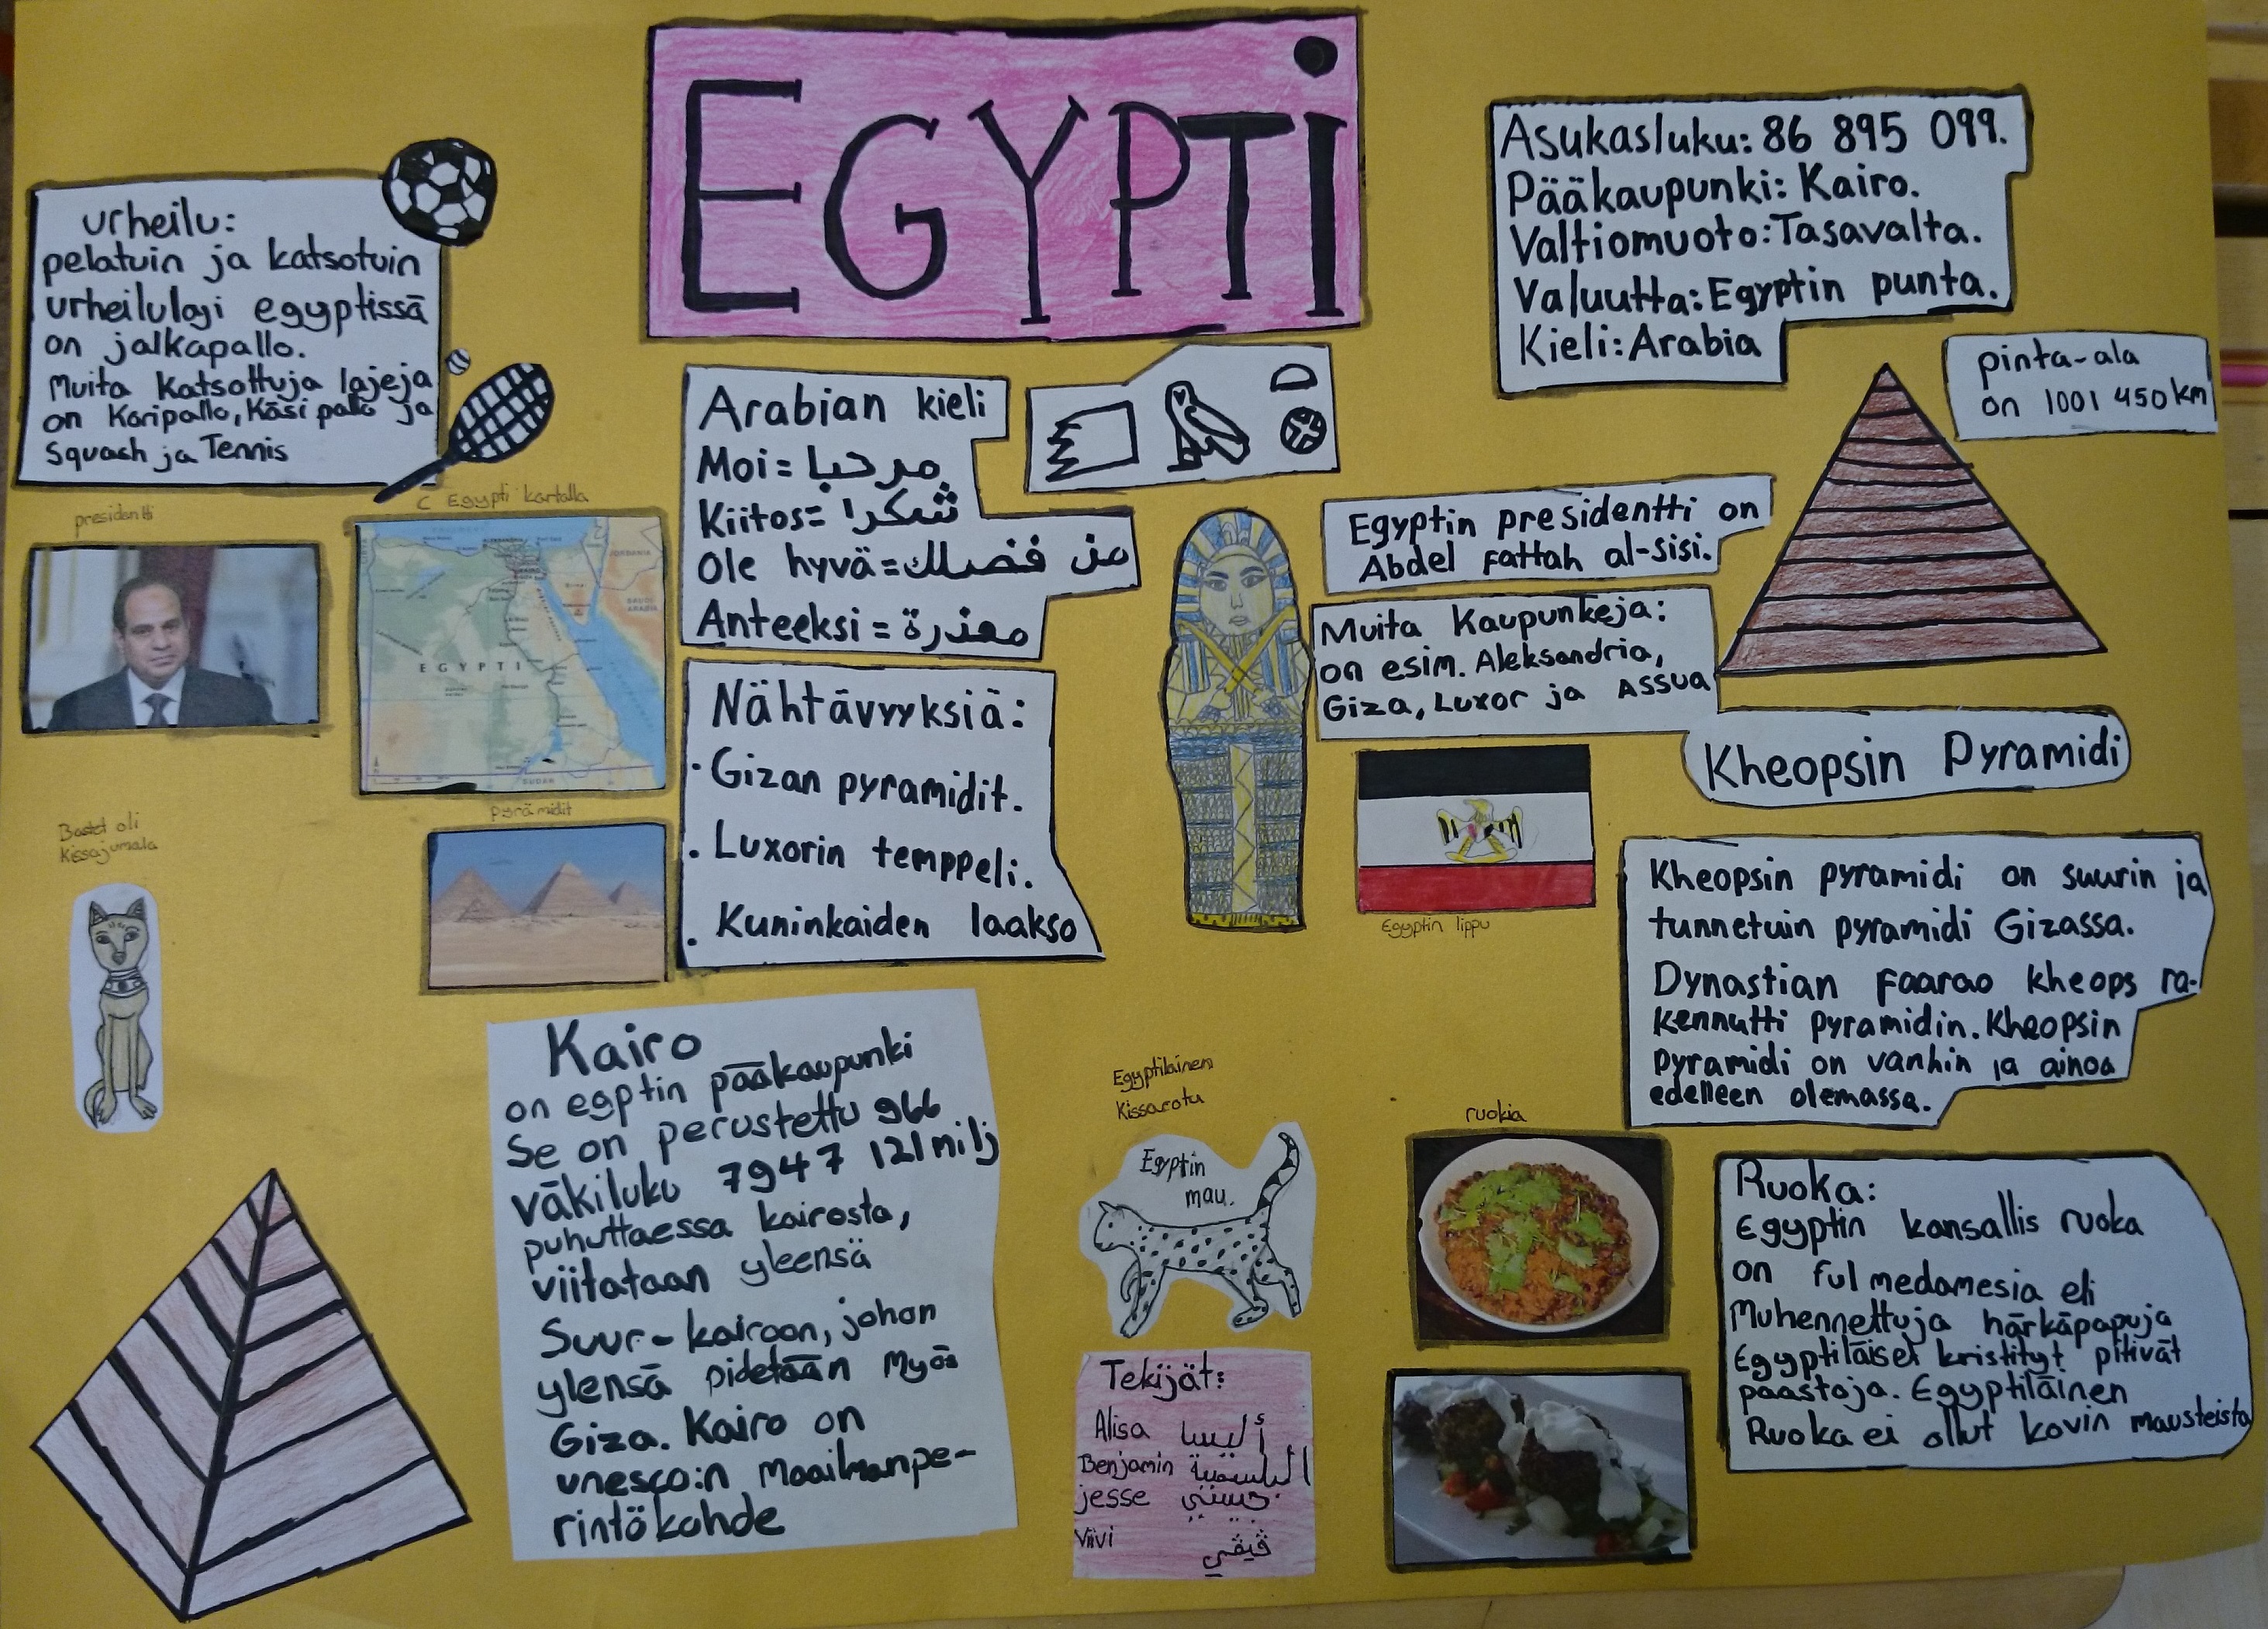 EGYPTi
urheilu:
pelatuin ja katsotuin
urheilulaji egyptissä
on jalkapallo.
Muita katsottuja lajeja
on Koripallo, Käsi pallo ja
Squash ja Tennis
Asukasluku: 86 895 099.
Pääkaupunki: Kairo.
Valtiomuoto: Tasavalta.
Valuutta: Egyptin punta.
Kieli: Arabia
pinta-ala
on 1001 450 km
Arabian kieli
Moi= مرحبا
Kiitos= شكرا
Ole hyvä= من فضلك
Anteeksi = معذرة
Egyptin presidentti on
Abdel Fattah al-sisi.
Muita Kaupunkeja:
on esim. Aleksandria,
Giza, Luxor ja ASSUA
presidentti
Egypti kartalla
EGYPTI
JORDANIA
SAUDI
ARABIA
SUDAN
Nähtävyyksiä:
· Gizan pyramidit.
. Luxorin temppeli.
. Kuninkaiden laakso
pyrämidit
Egyptin lippu
Kheopsin Pyramidi
Kheopsin pyramidi on suurin ja
tunnetuin pyramidi Gizassa.
Dynastian Faarao kheops ra-
kennutti pyramidin. Kheopsin
pyramidi on vanhin ja ainoa
edelleen olemassa.
Bastet oli
Kissajumala
Kairo
on egptin pääkaupunki
Se on perustettu 966
väkiluku 7947 121 milj
puhuttaessa kairosta,
viitataan yleensä
Suur-kairoon, johon
ylensä pidetään myös
Giza. Kairo on
unesco:n Maailmanpe-
rintökohde
Egyptiläinen
Kissarotu
Egyptin
mau.
Tekijät:
Alisa أليسا
Benjamin
jesse
Viivi ڤيڤي
ruokia
Ruoka:
Egyptin kansallis ruoka
on ful medamesia eli
Muhennettuja härkäpapuja
Egyptiläiset kristityt pitivät
paastoja. Egyptiläinen
Ruoka ei ollut kovin mausteista